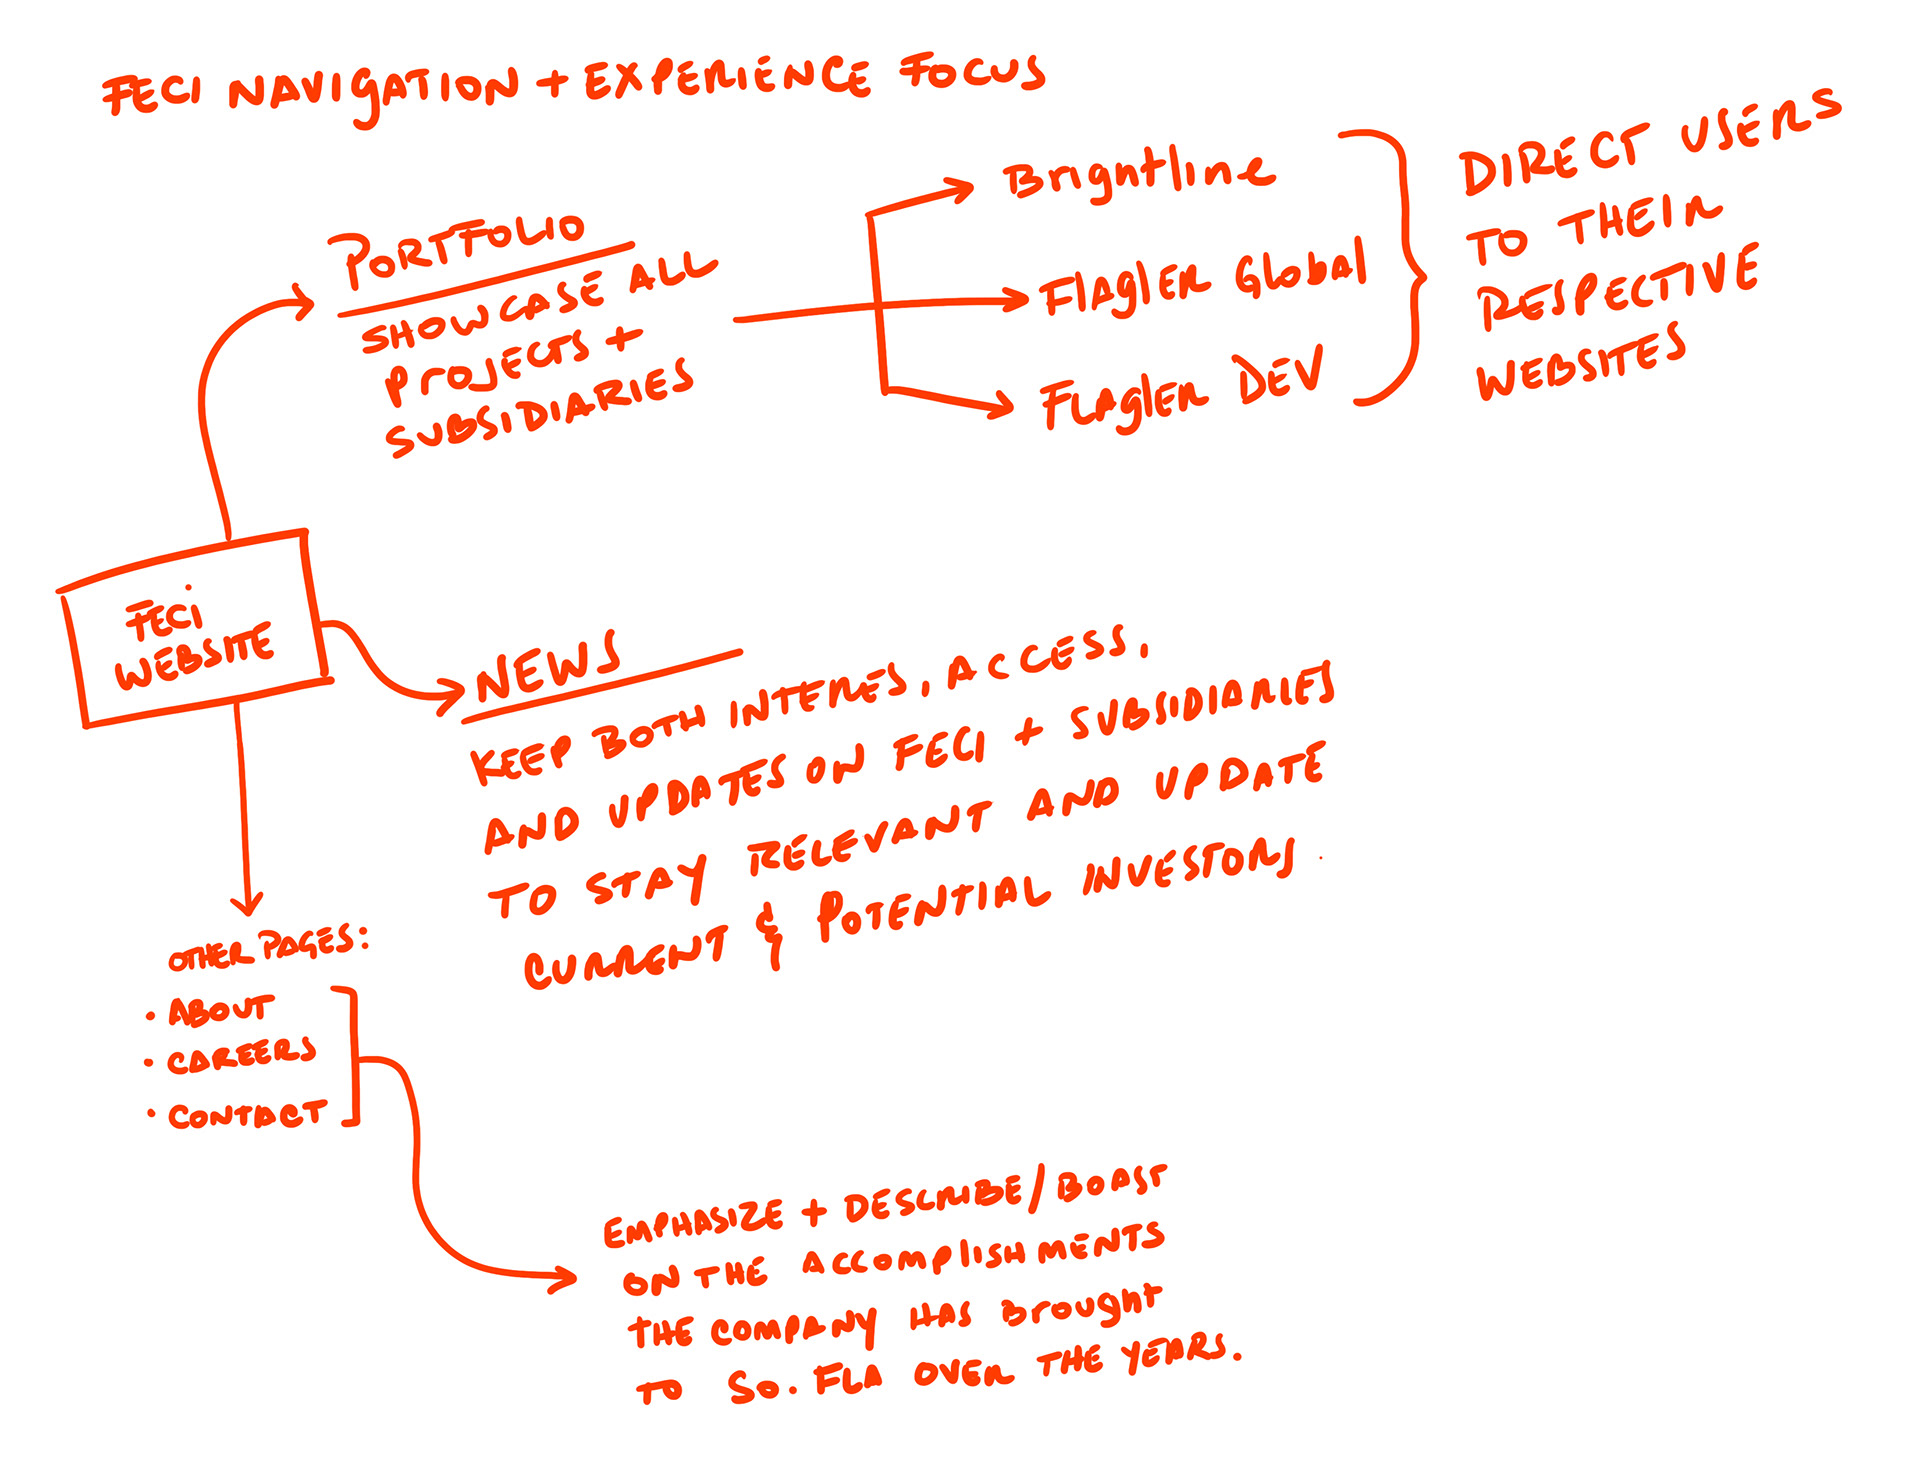 FECI NAVIGATION + EXPERIENCE FOCUS
PORTFOLIO
SHOWCASE ALL
PROJECTS +
SUBSIDIARIES
Brightline
FlAglER Global
FLAglER DEV
DIRECT USERS
TO THEIR
RESPECTIVE
WEBSITES
FECi
WEBSITE
NEWS
KEEP BOTH INTERES, ACCESS,
AND UPDATES ON FECI + SUBSIDIARIES
TO STAY RELEVANT AND UPDATE
CURRENT & POTENTIAL INVESTORS.
OTHER PAGES:
• ABOUT
• CAREERS
• CONTACT
EMPHASIZE + DESCRIBE/BOAST
ON THE ACCOMPLISHMENTS
THE COMPANY HAS Brought
TO SO. FLA OVER THE YEARS.